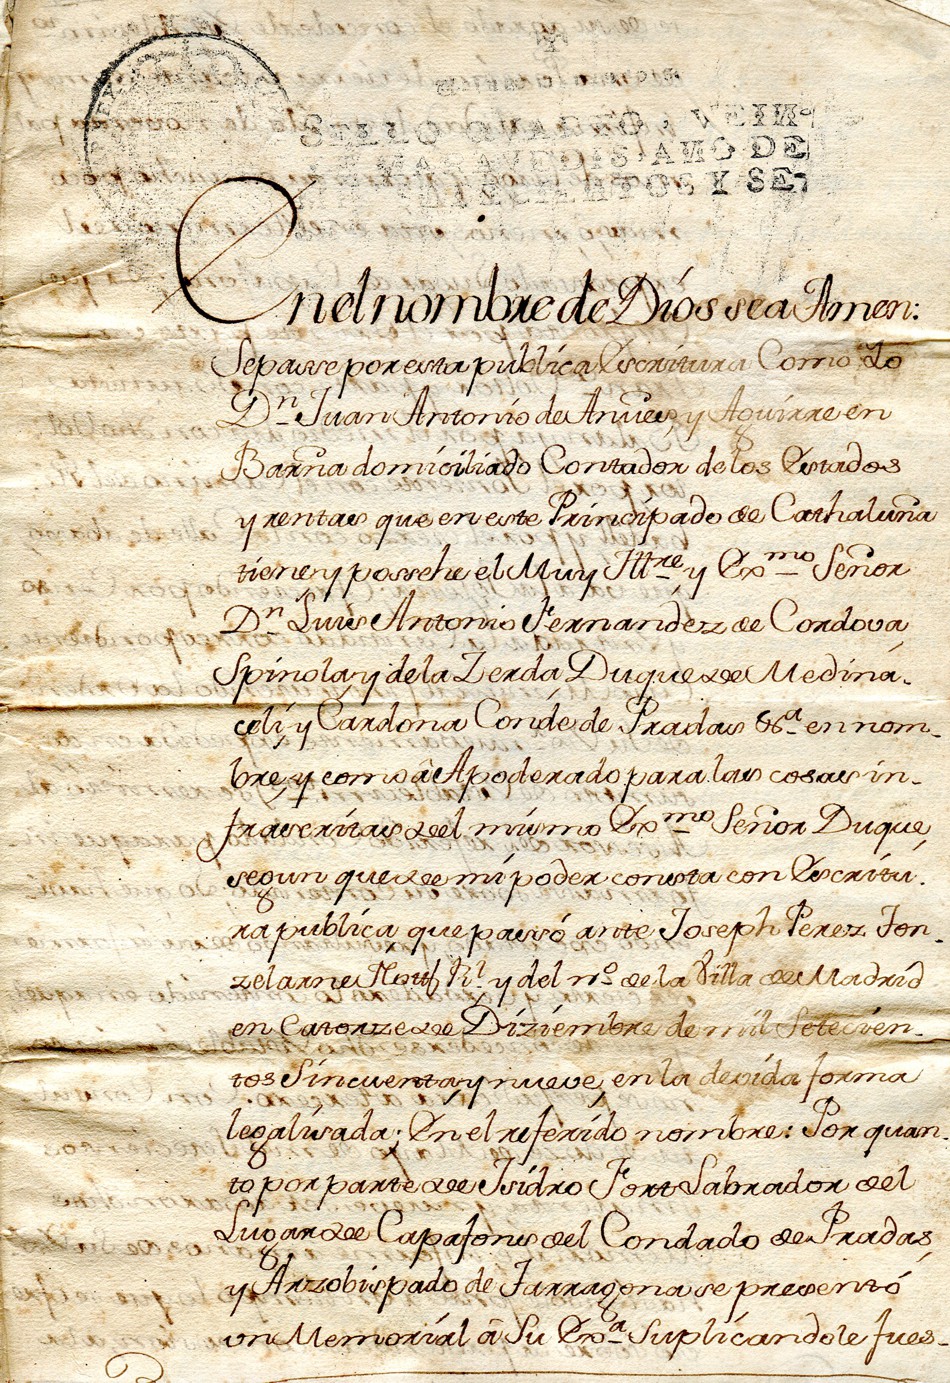 SELLO QVARTO, VEIN
TE MARAVEDIS, AÑO DE
SETECIENTOS Y SE
En el nombre de Dios sea Amen:
Sepasse por esta publica Escritura Como Yo
Dn. Juan Antonio de y Aguirre en
Barna domiciliado Contador de los Estados
y rentas que en este Principado de Cathaluña
tiene, y possehe el Muy Iltre. y Exmo. Señor
Dn. Luis Antonio Fernandez de Cordova
Spinola, y de la Zerda Duque de Medina-
celi, y Cardona Conde de Pradas &a. en nom-
bre, y como â Apoderado para las cosas in-
frascritas del mismo Exmo. Señor Duque
segun que de mi poder consta con Escritu-
ra publica que passó ante Joseph Perez
Rl. y del no. de la Villa de Madrid
en Catorze de Diziembre de mil Setecien-
tos Sincuenta, y nueve, en la devida forma
legalisada; En el referido nombre: Por quan-
to por parte de Isidro Fort Labrador del
Lugar de Capafons del Condado de Pradas,
y Arzobispado de Tarragona se presentó
un Memorial â Su Exa. Suplicandole fues-